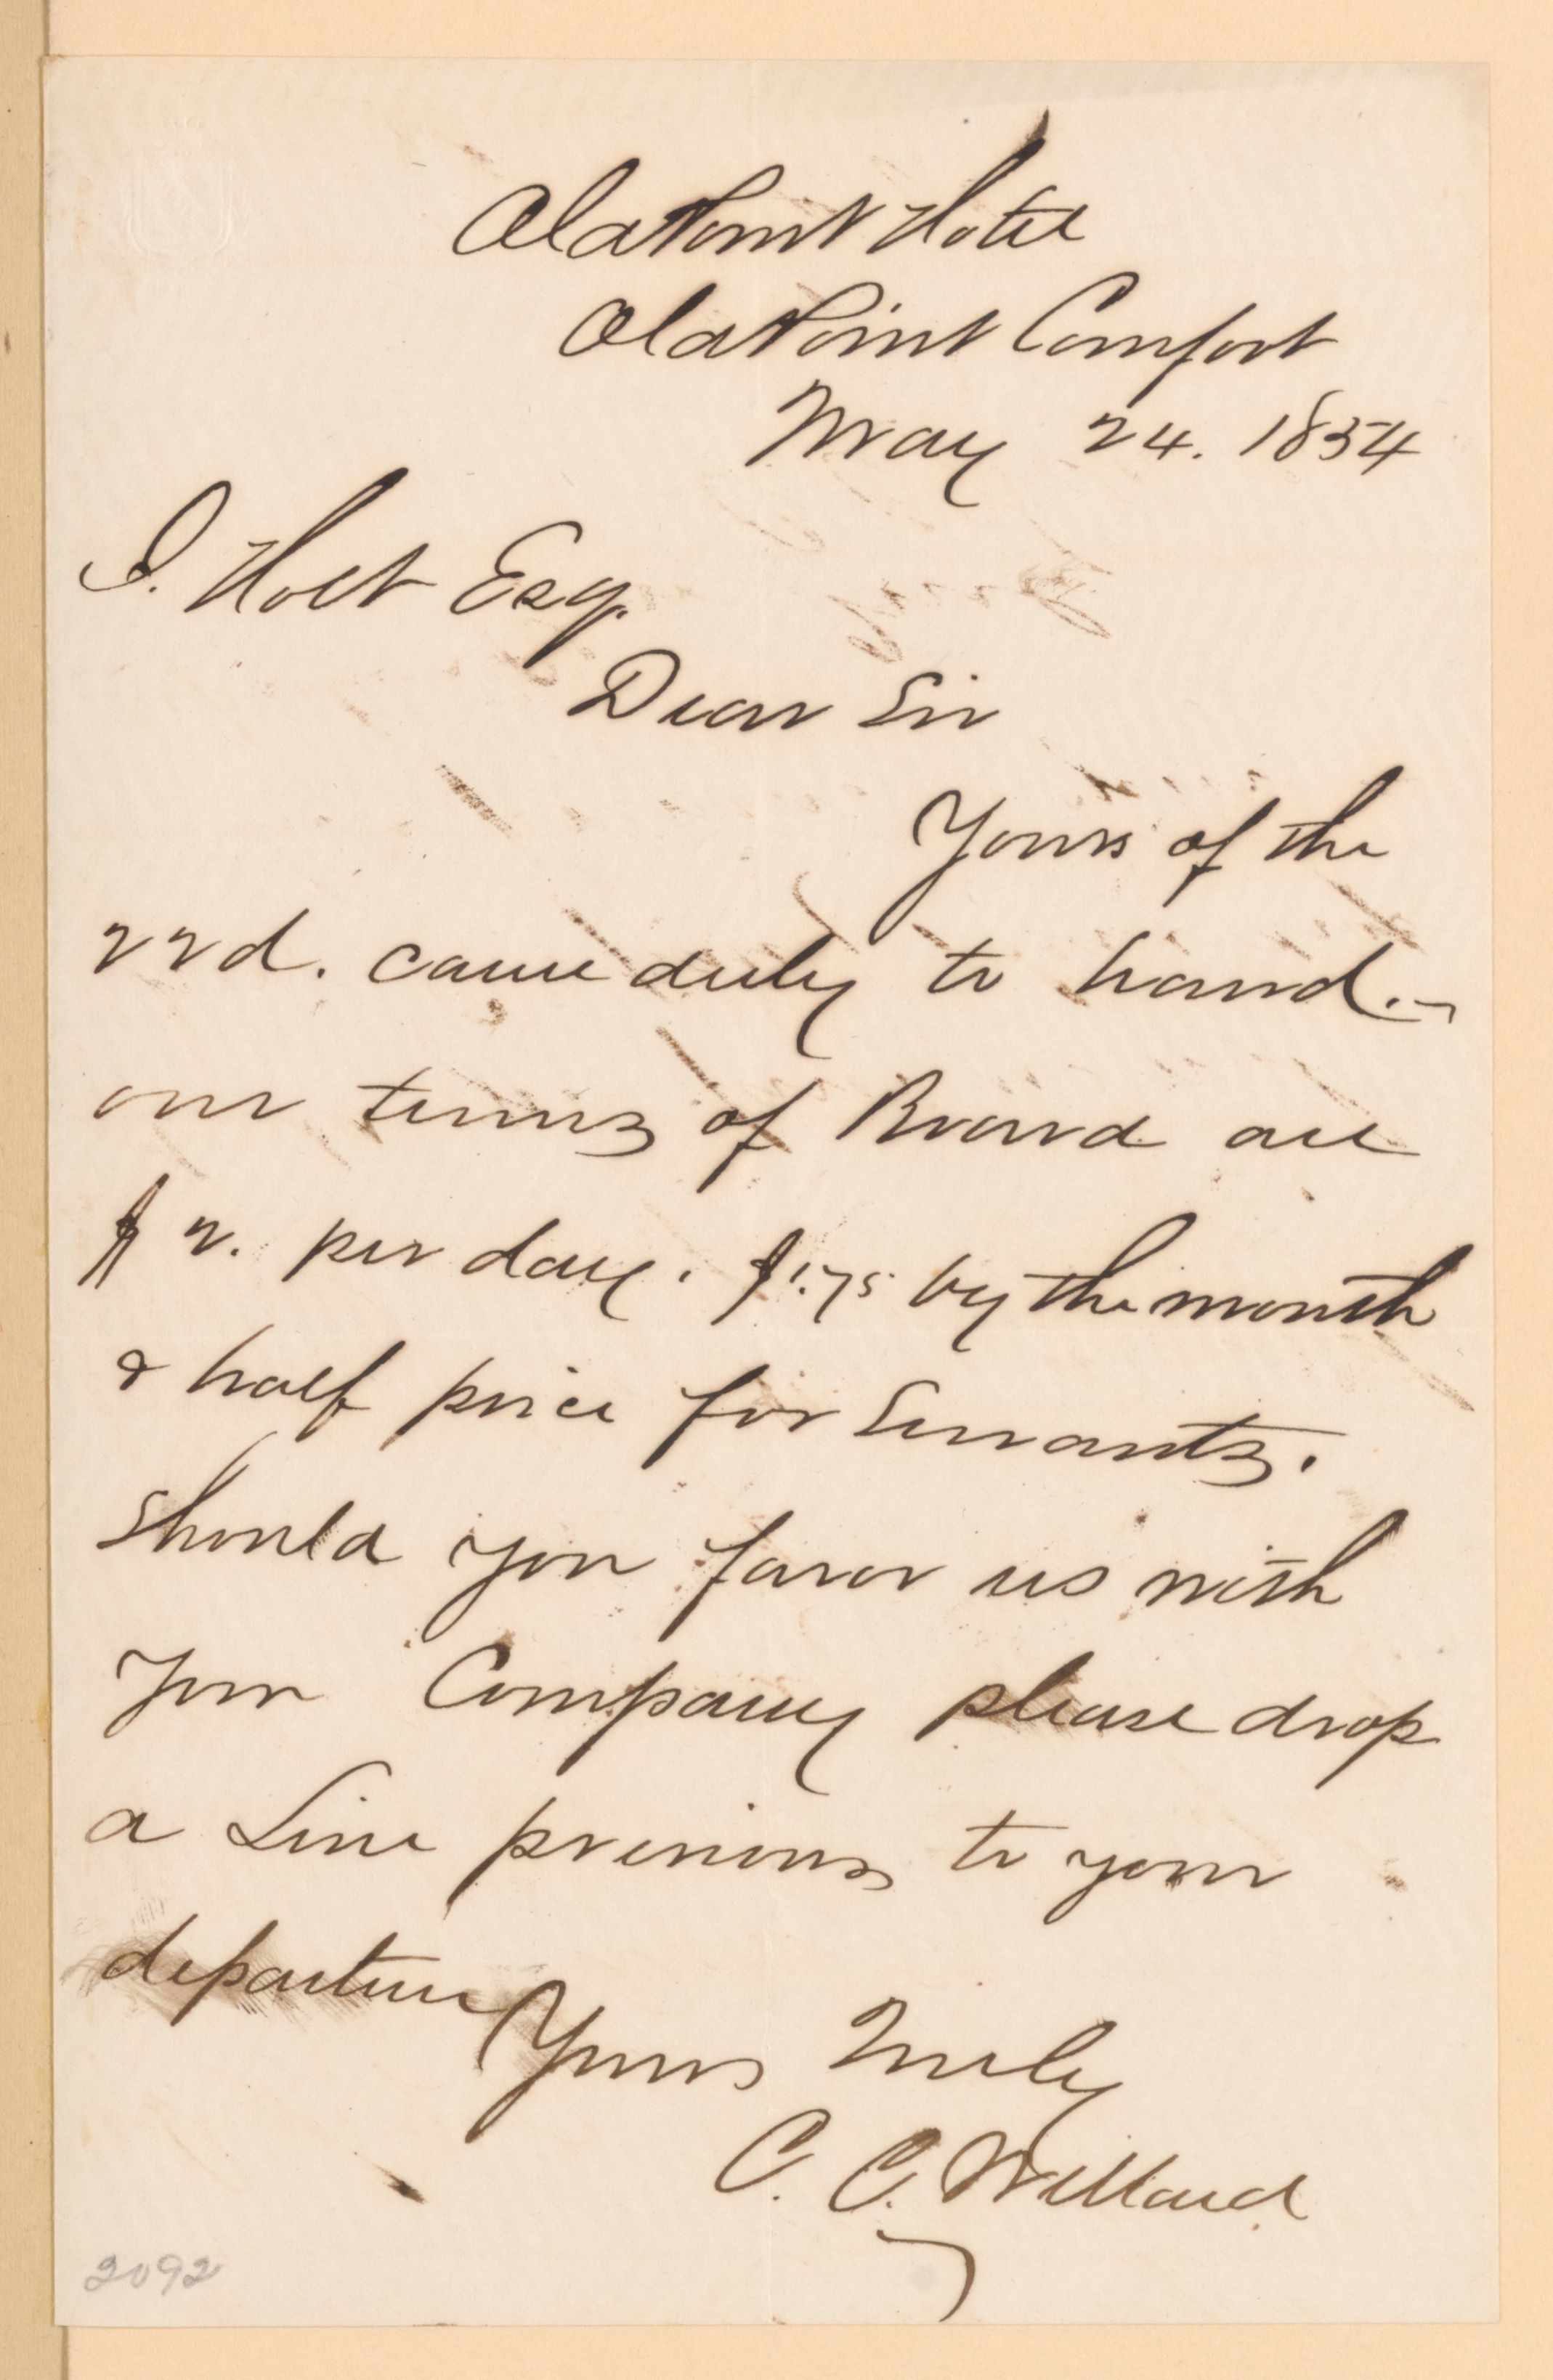 Old Point Hotel
Old Point Comfort
May 24. 1854
J. Holt Esq.
Dear Sir
Yours of the
22d. came duly to hand.-
our terms of Board are
$2. per day. $1.75 by the month
& half price for Servants.
Should you favor us with
your Company please drop
a Line previous to your
departure
Yours Truly
C. C. Willard
2092